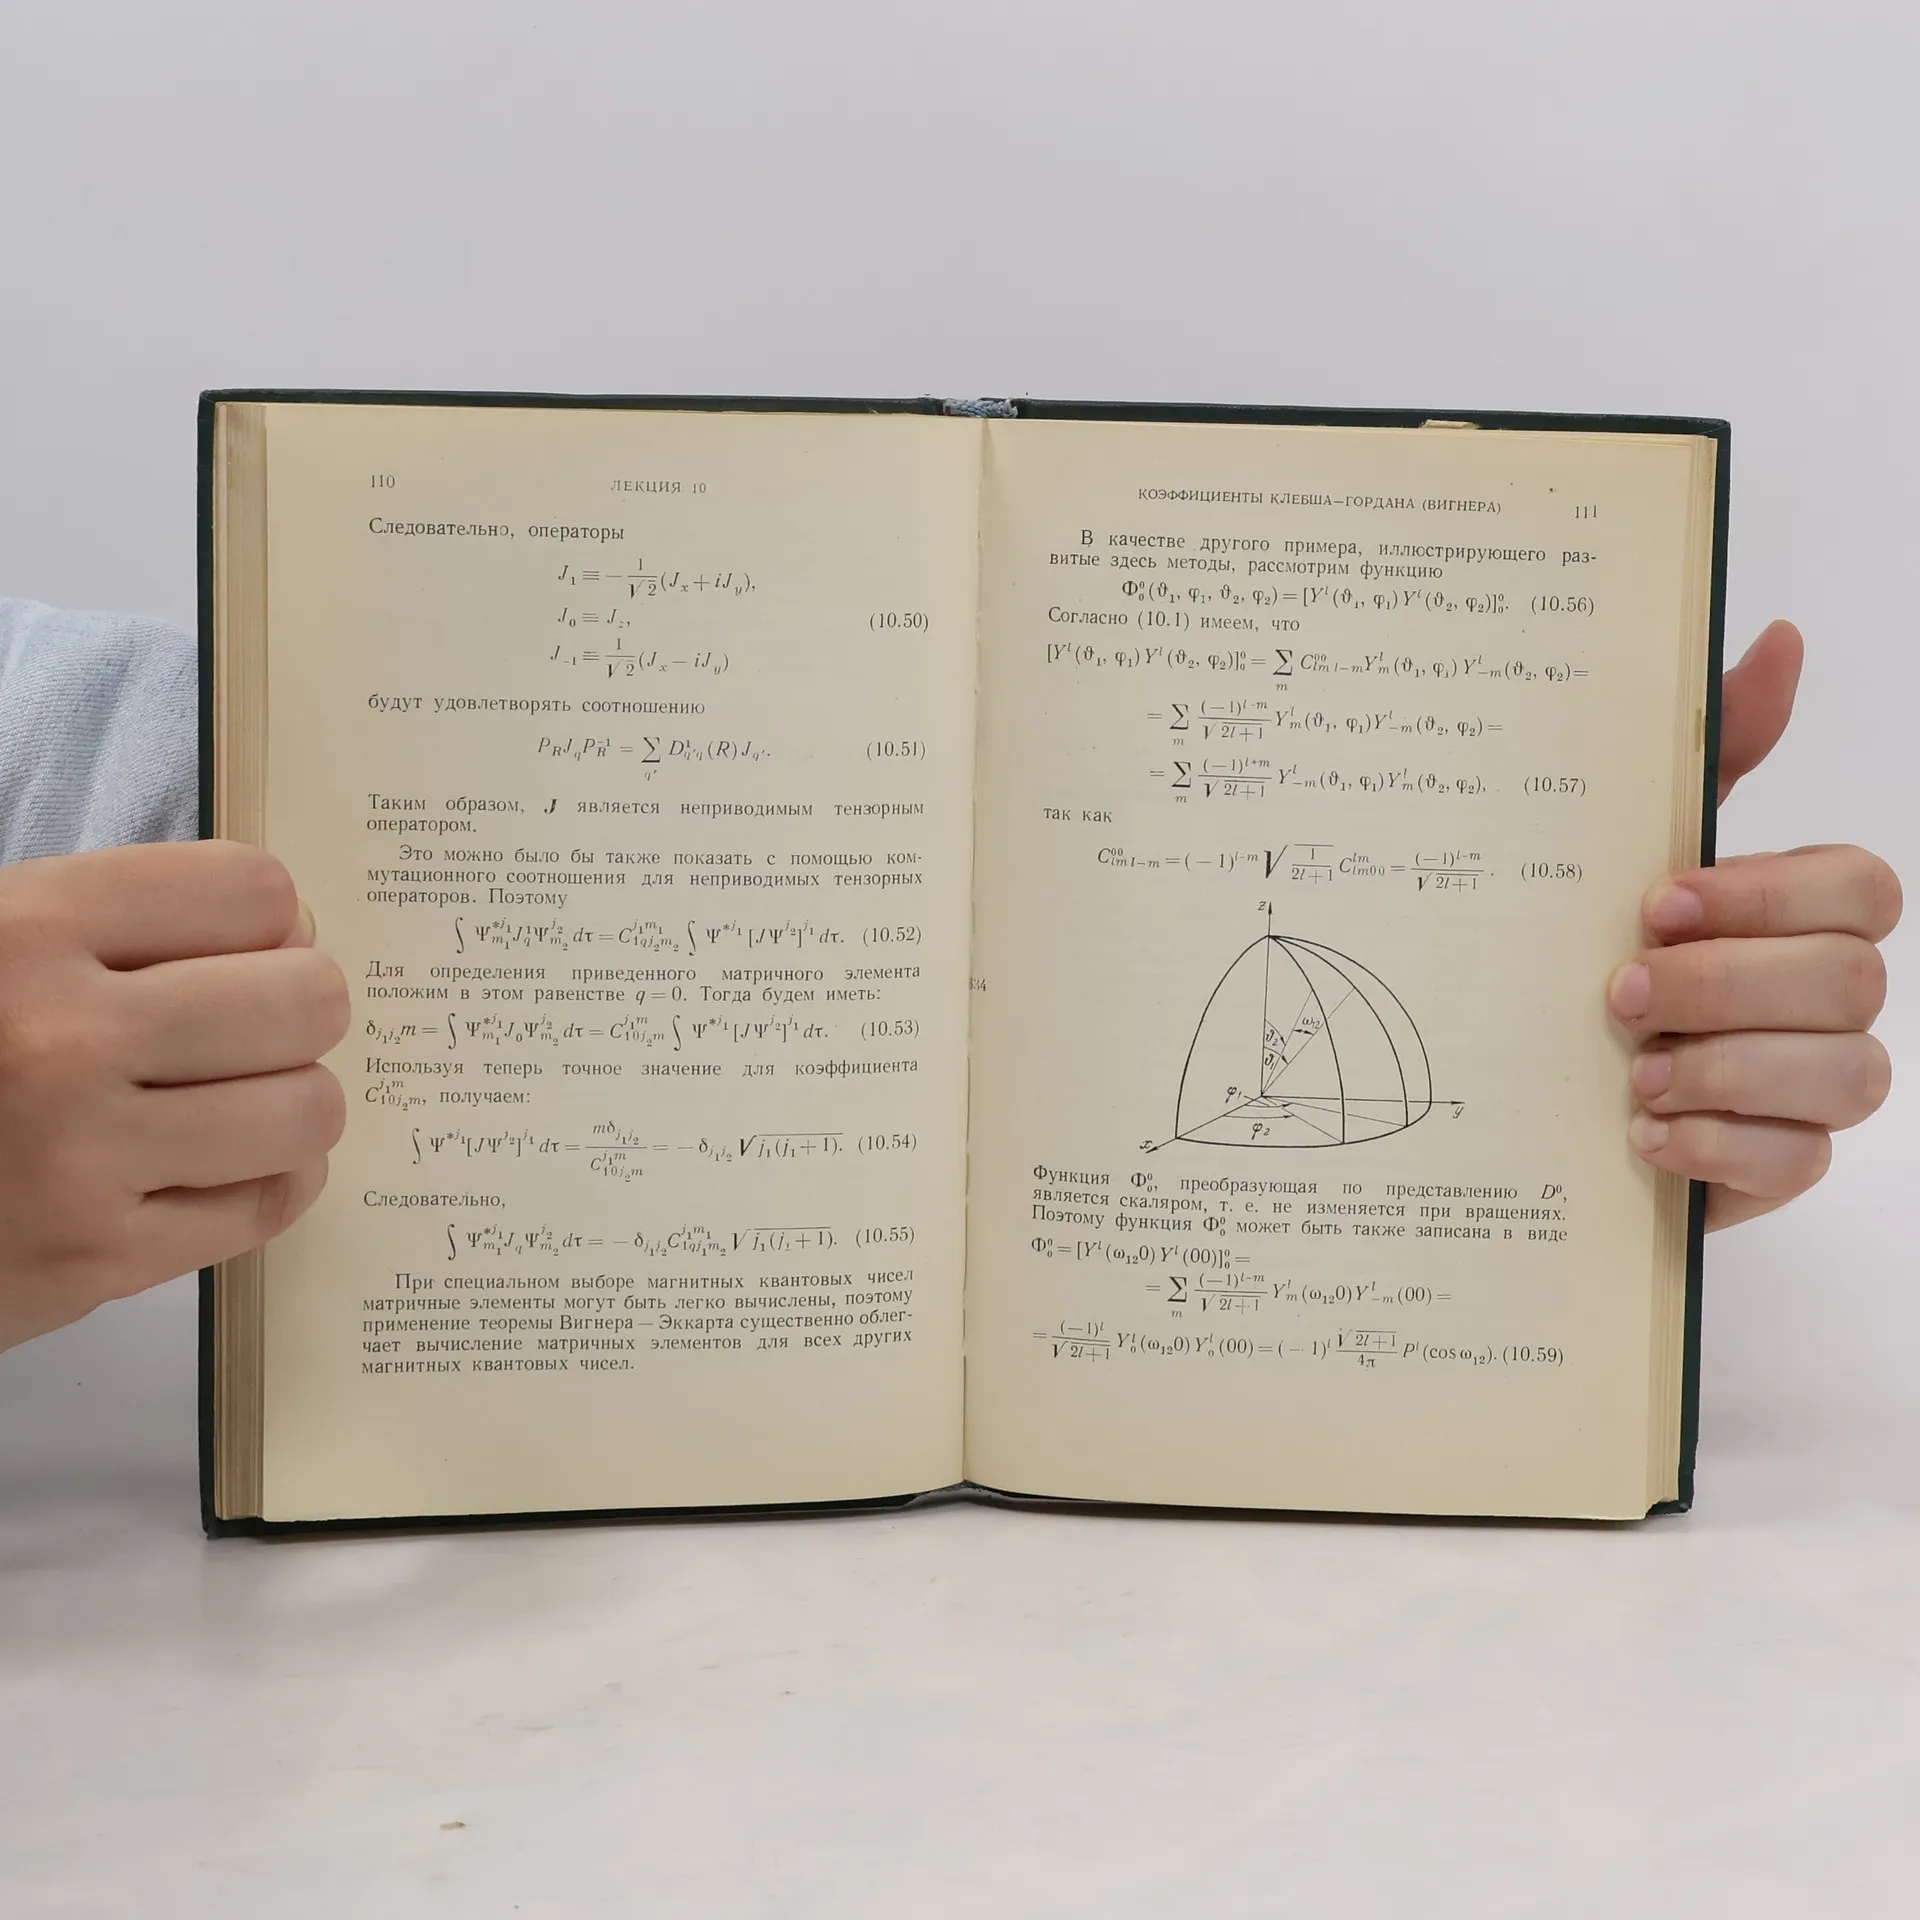 110
ЛЕКЦИЯ 10
Следовательно, операторы
J₁ ≡ − 1/√2 (Jₓ + iJ_y),
J₀ ≡ J_z, (10.50)
J₋₁ ≡ 1/√2 (Jₓ − iJ_y)
будут удовлетворять соотношению
P_R J_q P_R^{−1} = ∑_{q′} D^1_{q′q} (R) J_{q′}. (10.51)
Таким образом, J является неприводимым тензорным
оператором.
Это можно было бы также показать с помощью ком-
мутационного соотношения для неприводимых тензорных
операторов. Поэтому
∫ Ψ^{*j₁}_{m₁} J^1_q Ψ^{j₂}_{m₂} dτ = C^{j₁m₁}_{1qj₂m₂} ∫ Ψ^{*j₁} [JΨ^{j₂}]^{j₁} dτ. (10.52)
Для определения приведенного матричного элемента
положим в этом равенстве q = 0. Тогда будем иметь:
δ_{j₁j₂} m = ∫ Ψ^{*j₁}_{m₁} J₀ Ψ^{j₂}_{m₂} dτ = C^{j₁m}_{10j₂m} ∫ Ψ^{*j₁} [JΨ^{j₂}]^{j₁} dτ. (10.53)
Используя теперь точное значение для коэффициента
C^{j₁m}_{10j₂m}, получаем:
∫ Ψ^{*j₁} [JΨ^{j₂}]^{j₁} dτ = mδ_{j₁j₂} / C^{j₁m}_{10j₂m} = − δ_{j₁j₂} √j₁(j₁ + 1). (10.54)
Следовательно,
∫ Ψ^{*j₁}_{m₁} J_q Ψ^{j₂}_{m₂} dτ = − δ_{j₁j₂} C^{j₁m₁}_{1qj₁m₂} √j₁(j₁ + 1). (10.55)
При специальном выборе магнитных квантовых чисел
матричные элементы могут быть легко вычислены, поэтому
применение теоремы Вигнера — Эккарта существенно облег-
чает вычисление матричных элементов для всех других
магнитных квантовых чисел.
КОЭФФИЦИЕНТЫ КЛЕБША—ГОРДАНА (ВИГНЕРА)
111
В качестве другого примера, иллюстрирующего раз-
витые здесь методы, рассмотрим функцию
Φ^0_0 (ϑ₁, φ₁, ϑ₂, φ₂) = [Y^l (ϑ₁, φ₁) Y^l (ϑ₂, φ₂)]^0_0. (10.56)
Согласно (10.1) имеем, что
[Y^l (ϑ₁, φ₁) Y^l (ϑ₂, φ₂)]^0_0 = ∑_m C^{00}_{lm l−m} Y^l_m (ϑ₁, φ₁) Y^l_{−m} (ϑ₂, φ₂) =
= ∑_m (−1)^{l−m} / √2l+1 Y^l_m (ϑ₁, φ₁) Y^l_{−m} (ϑ₂, φ₂) =
= ∑_m (−1)^{l+m} / √2l+1 Y^l_{−m} (ϑ₁, φ₁) Y^l_m (ϑ₂, φ₂), (10.57)
так как
C^{00}_{lm l−m} = (−1)^{l−m} √1/2l+1 C^{lm}_{lm00} = (−1)^{l−m} / √2l+1 . (10.58)
z
ω₁₂
ϑ₂
ϑ₁
φ₁
φ₂
y
x
Функция Φ^0_0, преобразующая по представлению D^0,
является скаляром, т. е. не изменяется при вращениях.
Поэтому функция Φ^0_0 может быть также записана в виде
Φ^0_0 = [Y^l (ω₁₂0) Y^l (00)]^0_0 =
= ∑_m (−1)^{l−m} / √2l+1 Y^l_m (ω₁₂0) Y^l_{−m} (00) =
= (−1)^l / √2l+1 Y^l_0 (ω₁₂0) Y^l_0 (00) = (−1)^l √2l+1 / 4π P^l (cos ω₁₂). (10.59)